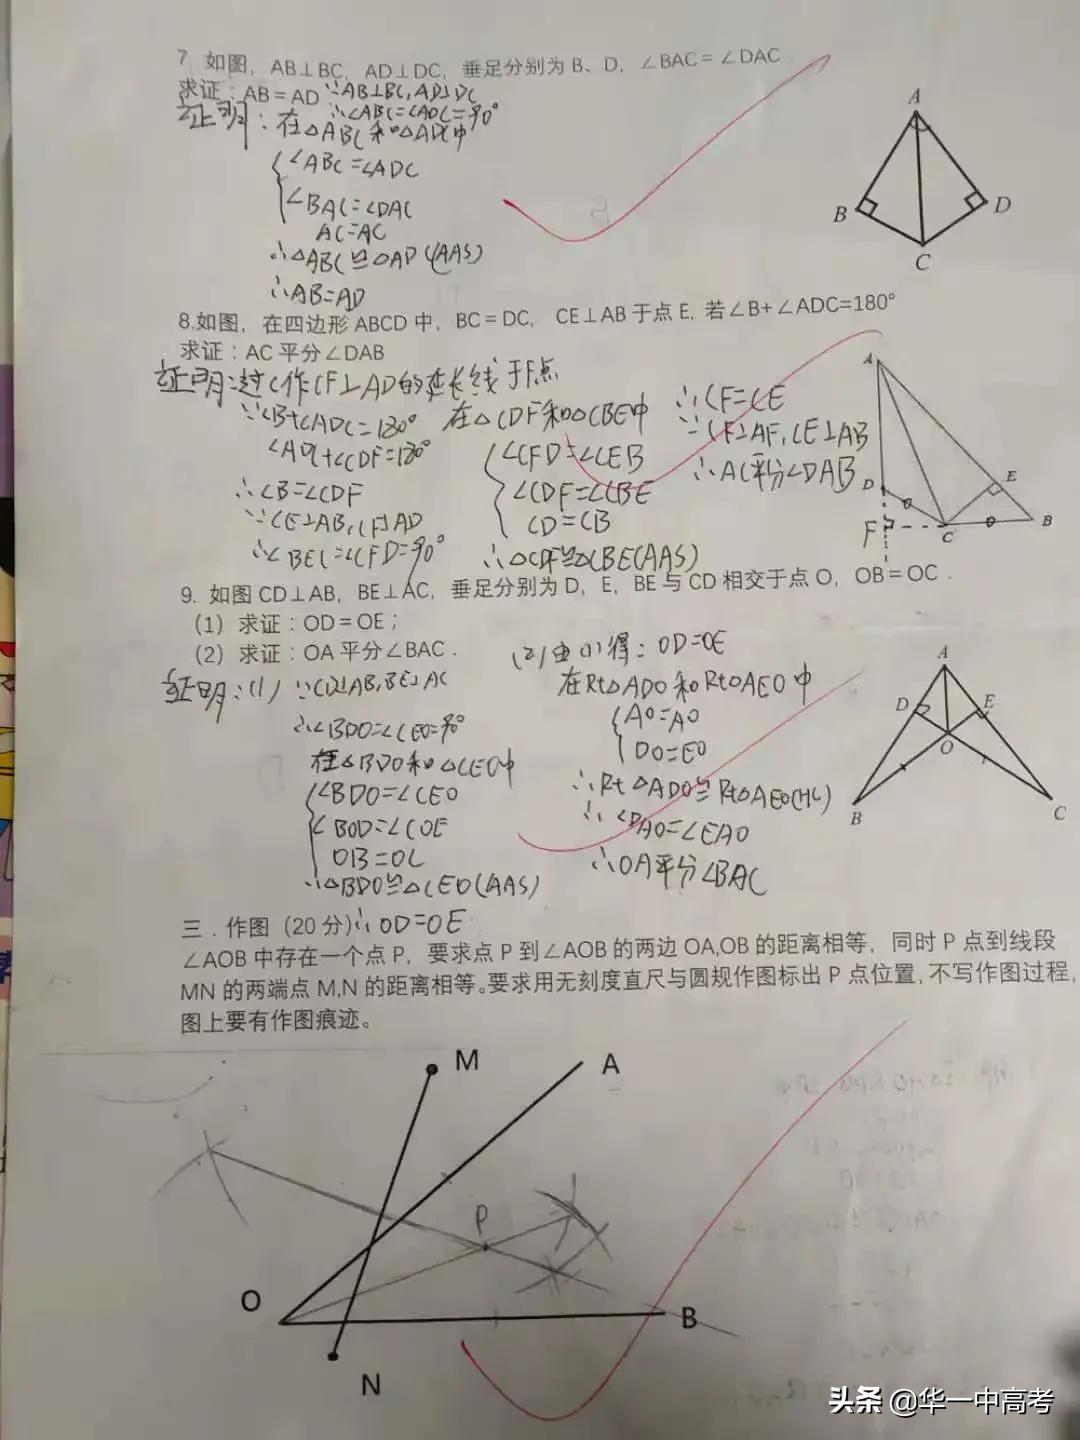 7 如图，AB⊥BC，AD⊥DC，垂足分别为 B、D，∠BAC= ∠DAC
求证：AB=AD ∵AB⊥BC,AD⊥DC
∴∠ABC=∠ADC=90°
证明：在△ABC和△ADC中
∠ABC=∠ADC
∠BAC=∠DAC
AC=AC
∴△ABC≌△ADC(AAS)
∴AB=AD
8.如图，在四边形 ABCD 中，BC=DC， CE⊥AB于点E, 若∠B+∠ADC=180°
求证：AC 平分∠DAB
证明：过C作CF⊥AD的延长线于F点
∵∠B+∠ADC=180°
∠ADC+∠CDF=180°
∴∠B=∠CDF
∵CE⊥AB,CF⊥AD
∴∠BEC=∠CFD=90°
在△CDF和△CBE中
∠CFD=∠CEB
∠CDF=∠CBE
CD=CB
∴△CDF≌△CBE(AAS)
∴CF=CE
∵CF⊥AF,CE⊥AB
∴AC平分∠DAB
9. 如图 CD⊥AB，BE⊥AC，垂足分别为 D，E，BE 与 CD 相交于点 O，OB=OC．
（1）求证：OD=OE；
（2）求证：OA 平分∠BAC．
证明：(1) ∵CD⊥AB,BE⊥AC
∴∠BDO=∠CEO=90°
在△BDO和△CEO中
∠BDO=∠CEO
∠BOD=∠COE
OB=OC
∴△BDO≌△CEO(AAS)
∴OD=OE
(2)由(1)得：OD=OE
在Rt△ADO和Rt△AEO中
AO=AO
DO=EO
∴Rt△ADO≌Rt△AEO(HL)
∴∠DAO=∠EAO
∴OA平分∠BAC
三．作图（20 分）
∠AOB 中存在一个点 P，要求点 P 到∠AOB 的两边 OA,OB 的距离相等，同时 P 点到线段
MN 的两端点 M,N 的距离相等。要求用无刻度直尺与圆规作图标出 P 点位置，不写作图过程，
图上要有作图痕迹。
A
B
D
C
A
D
E
F
C
B
A
D
E
O
B
C
M
A
P
O
B
N
头条 @华一中高考